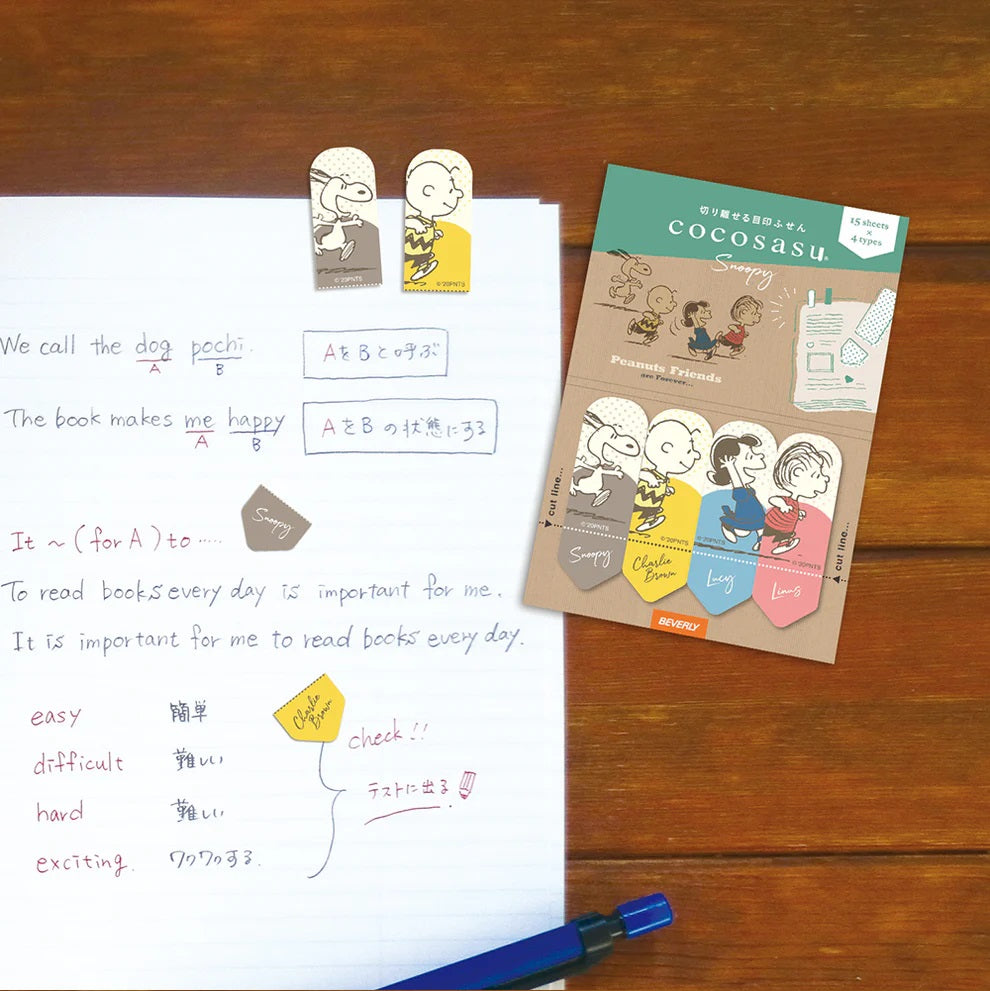 ©'20PNTS
©'20PNTS
We call the dog pochi.
A B
AをBと呼ぶ
The book makes me happy
A B
AをBの状態にする
Snoopy
It ~ (for A) to ‥‥‥
To read books every day is important for me.
It is important for me to read books every day.
easy 簡単
difficult 難しい
hard 難しい
exciting. ワクワクする.
Charlie
Brown
check!!
テストに出る
切り離せる目印ふせん
cocosasu®
Snoopy
15 sheets
×
4 types
Peanuts Friends
are Forever...
cut line...
©'20PNTS
©'20PNTS
©'20PNTS
©'20PNTS
Snoopy
Charlie
Brown
Lucy
Linus
cut line...
BEVERLY